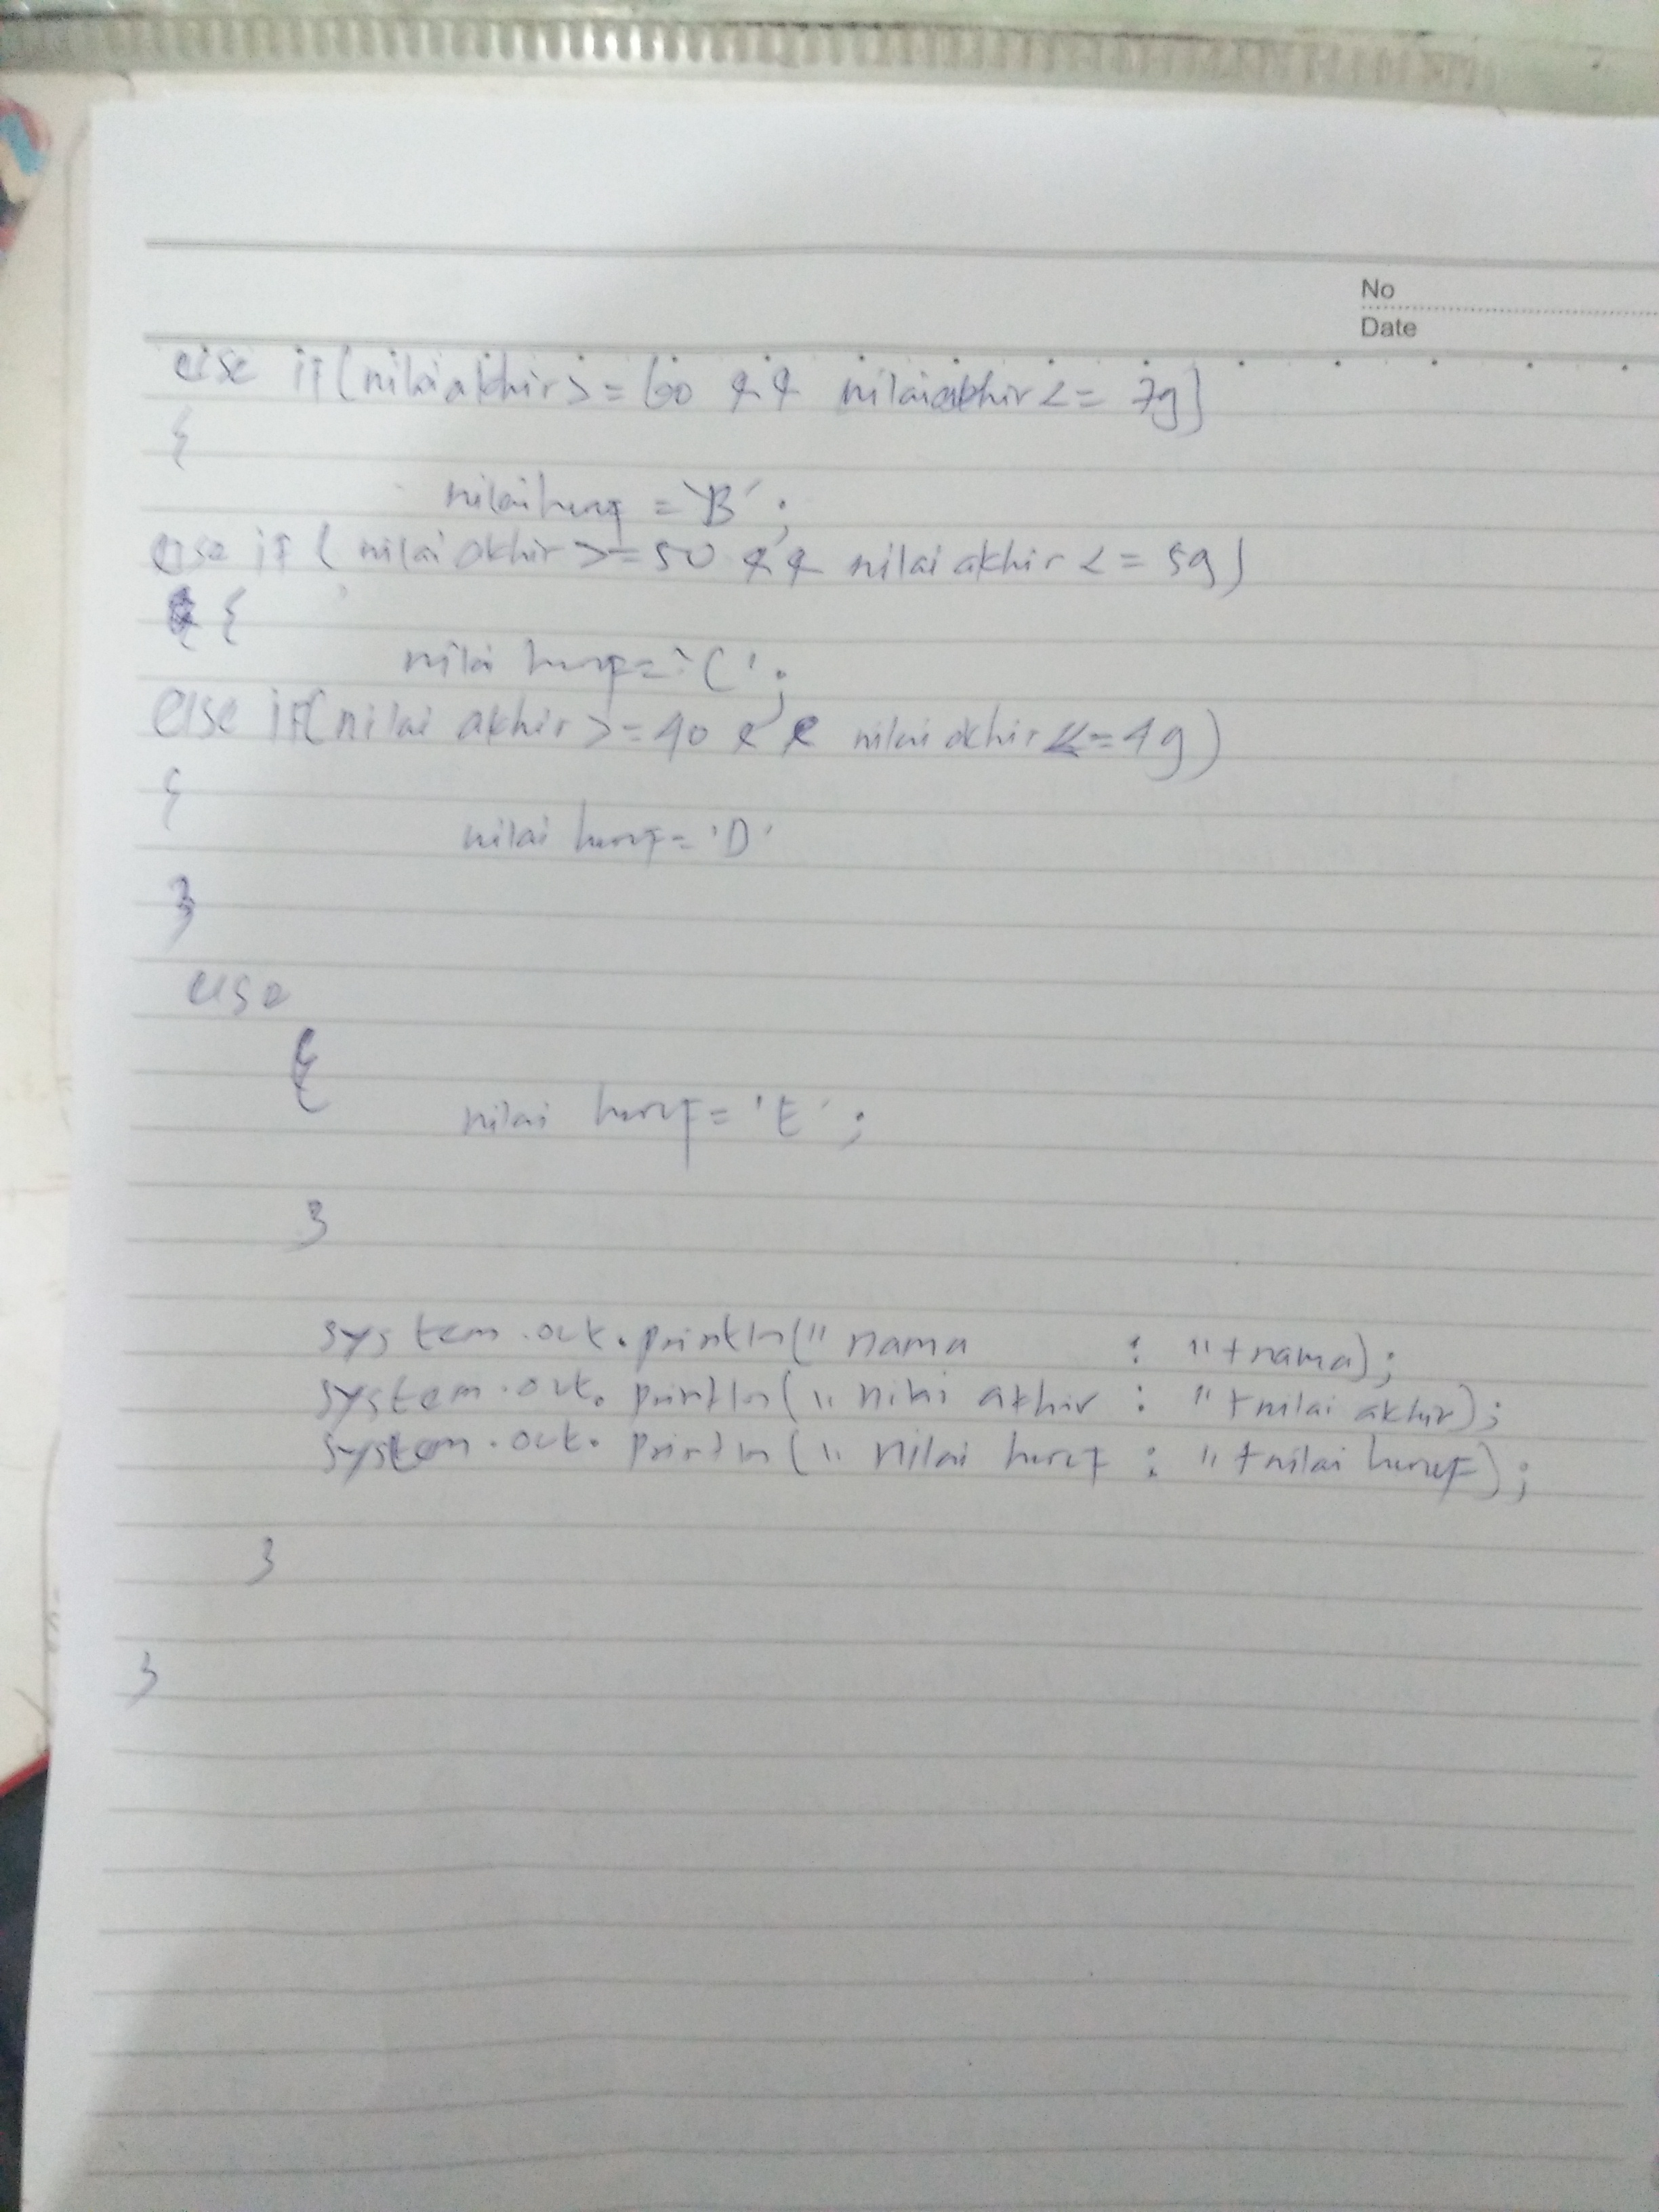 No
Date
else if(nilaiakhir>=60 && nilaiakhir<= 79)
{
nilaihuruf ='B';
else if (nilai akhir >=50 && nilai akhir <= 59)
{
nilai huruf='C';
else if(nilai akhir >=40 && nilai akhir <=49)
{
nilai huruf='D'
}
else
{
nilai huruf='E';
}
system.out.println("nama : "+nama);
system.out.println("nilai akhir : "+nilai akhir);
system.out.println(" nilai huruf : "+nilai huruf);
}
}